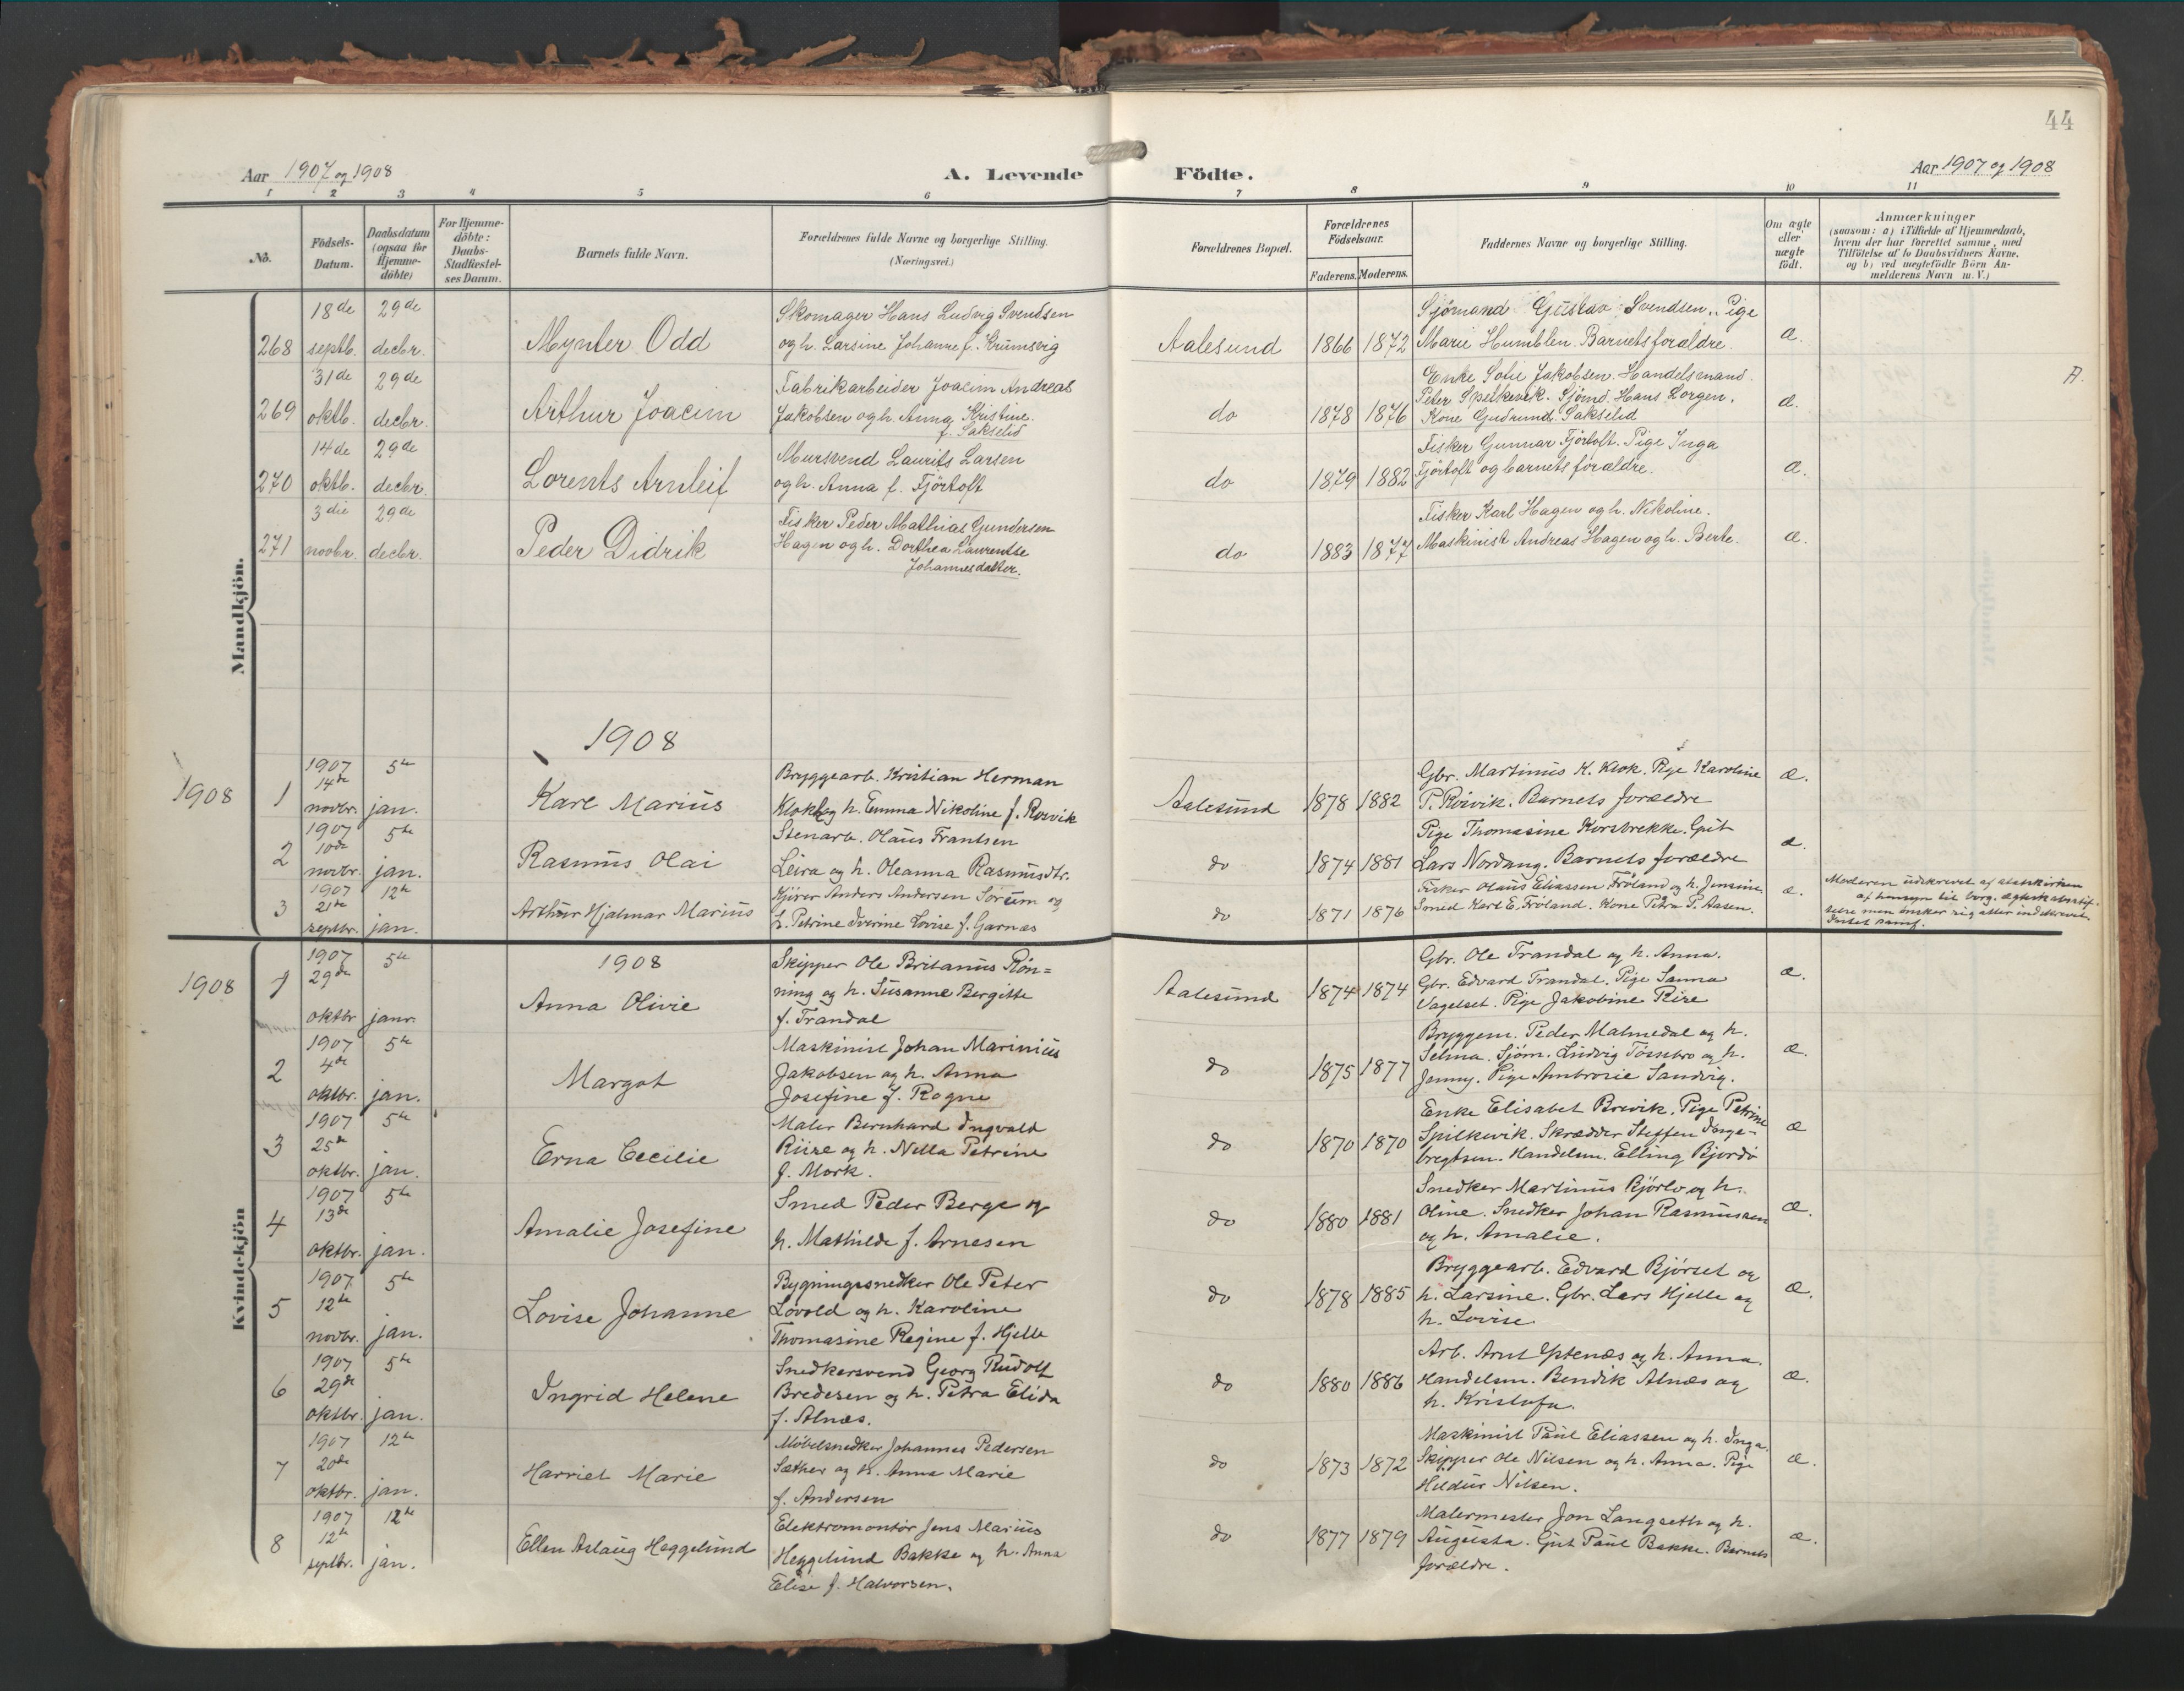 44
Aar 1907 og 1908
A. Levende Födte.
Aar 1907 og 1908
1 2 3 4 5 6 7 8 9 10 11
No.
Födsels-Datum.
Daabsdatum (ogsaa for Hjemmedöbte)
For Hjemmedöbte: Daabs-Stadfæstelses Datum.
Barnets fulde Navn.
Forældrenes fulde Navne og borgerlige Stilling.
(Næringsvei.)
Forældrenes Bopæl.
Forældrenes Födselsaar.
Faderens. Moderens.
Faddernes Navne og borgerlige Stilling.
Om ægte eller uægte födt.
Anmærkninger
(saasom: a) i Tilfælde af Hjemmedaab,
hvem der har forrettet samme, med
Tilföielse af to Daabsvidners Navne.
og b) ved uægtefödte Börn An-
melderens Navn m. V.)
Mandkjön.
268 18de septb. 29de decbr. Mynter Odd
Skomager Hans Ludvig Svendsen
og h. Larsine Johanne f. Krumsvig
Aalesund 1866 1872
Sjömand Gustav Svendsen. Pige
Marie Humblen. Barnets forældre. æ.
269 31de oktb. 29de decbr. Arthur Joacim
Fabrikarbeider Joacim Andreas
Jakobsen og h. Anna Kristine
f. Sakselid
do 1878 1876
Enke Sofie Jakobsen. Handelsmand
Peter Spelkevik. Sjömd. Hans Lorgen.
Kone Gudrund Sakselid æ.
A.
270 14de oktb. 29de decbr. Lorents Arnleif
Mursvend Laurits Larsen
og h. Anna f. Fjörtoft
do 1879 1882
Fisker Gunnar Fjörtoft. Pige Inga
Fjörtoft og barnets forældre. æ.
271 3die novbr. 29de decbr. Peder Didrik
Fisker Peder Mathias Gundersen
Hagen og h. Dorthea Laurentse
Johannesdatter.
do 1883 1877
Fisker Karl Hagen og h. Nikoline.
Maskinist Andreas Hagen og h. Berte. æ.
1908
1908 1 1907 14de novbr. 5te jan. Karl Marius
Bryggearb. Kristian Herman
Klokk og h. Emma Nikoline f. Rorvik
Aalesund 1878 1882
Gbr. Martinus K. Klok. Pige Karoline
P. Rörvik. Barnets forældre æ.
2 1907 10de novbr. 5te jan. Rasmus Olai
Stenarb. Olaus Frantsen
Leira og h. Oleanna Rasmusdtr.
do 1874 1881
Pige Thomasine Korsbrekke. Gut
Lars Nordang. Barnets forældre æ.
3 1907 21de septbr. 12te jan. Arthur Hjalmar Marius
Kjörer Anders Andersen Sorum og
h. Petrine Iverine Lovise f. Garnæs
do 1871 1876
Fisker Olaus Eliassen Fröland og h. Jensine.
Smed Karl E. Fröland. Kone Petra P. Aasen. æ.
Moderen udskrevet af statskirken
af hensyn til borg. ægteskabsstif-
telse men önsker sig atter indskrevet.
Kvindekjön
1908 1 1907 29de oktbr 5te janr. 1908
Anna Olivie
Skipper Ole Britanus Rön-
ning og h. Susanne Bergitte
f. Trandal
Aalesund 1874 1874
Gbr. Ole Trandal og h. Anna.
Gbr. Edvard Trandal. Pige Sanna
Vagelset. Pige Jakobine Rise æ.
2 1907 4de oktbr. 5te jan. Margot
Maskinist Johan Marinius
Jakobsen og h. Anna
Josefine f. Rogne
do 1875 1877
Bryggem. Peder Malmedal og h.
Selma. Sjöm. Ludvig Tössebro og h.
Jenny. Pige Ambrosie Sandvig. æ.
3 1907 25de oktbr. 5te jan. Erna Cecilie
Maler Bernhard Ingvald
Riise og h. Nilla Petrine
f. Mork.
do 1870 1870
Enke Elisabet Brevik. Pige Petrine
Spilkevik. Skrædder Steffen Inge-
bregtsen. Handelsm. Elling Bjerdö æ
4 1907 13de oktbr. 5te jan. Amalie Josefine
Smed Peder Berge og
h. Mathilde f. Arnesen
do 1880 1881
Snedker Martinus Bjørlo og h.
Oline. Snedker Johan Rasmussen
og h. Amalie. æ.
5 1907 12te novbr. 5te jan. Lovise Johanne
Bygningssnedker Ole Peter
Lovold og h. Karoline
Thomasine Regine f. Hjelle
do 1878 1885
Bryggearb. Edvard Bjørset og
h. Larsine. Gbr. Lars Hjelle og
h. Lovise æ.
6 1907 29de oktbr. 5te jan. Ingrid Helene
Snedkersvend Georg Rudolf
Bredesen og h. Petra Elida
f. Alnæs.
do 1880 1886
Arb. Arnt Ystenæs og h. Anna.
Handelsm. Bendik Alnæs og
h. Kristofa. æ.
7 1907 20de oktbr. 12te jan. Harriet Marie
Möbelsnedker Johannes Pedersen
Sæther og h. Anna Marie
f. Andersen
do 1873 1872
Maskinist Paul Eliassen og h. Inga.
Skipper Ole Nilsen og h. Anna. Pige
Hildur Nilsen. æ.
8 1907 12te septbr. 12te jan. Ellen Aslaug Heggelund
Elektromontör Jens Marius
Heggelund Bakke og h. Anna
Elise f. Halvorsen.
do 1877 1879
Malermester Jon Langseth og h.
Augusta. Gut Paul Bakke. Barnets
forældre. æ.